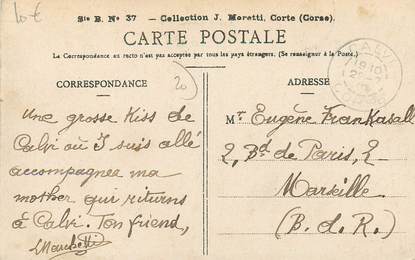 10 €
Sie B. No 37 - Collection J. Moretti, Corte (Corse).
CARTE POSTALE
La Correspondance au recto n'est pas acceptée par tous les pays étrangers. (Se renseigner à la Poste.)
CORRESPONDANCE
20
ADRESSE
Une grosse Kiss de
Calvi où J suis allé
accompagnee ma
mother qui riturns
à Calvi. Ton friend,
Marchetti
Mr Eugène Frankasall
2, Bd de Paris, 2
Marseille
(B. d. R.)